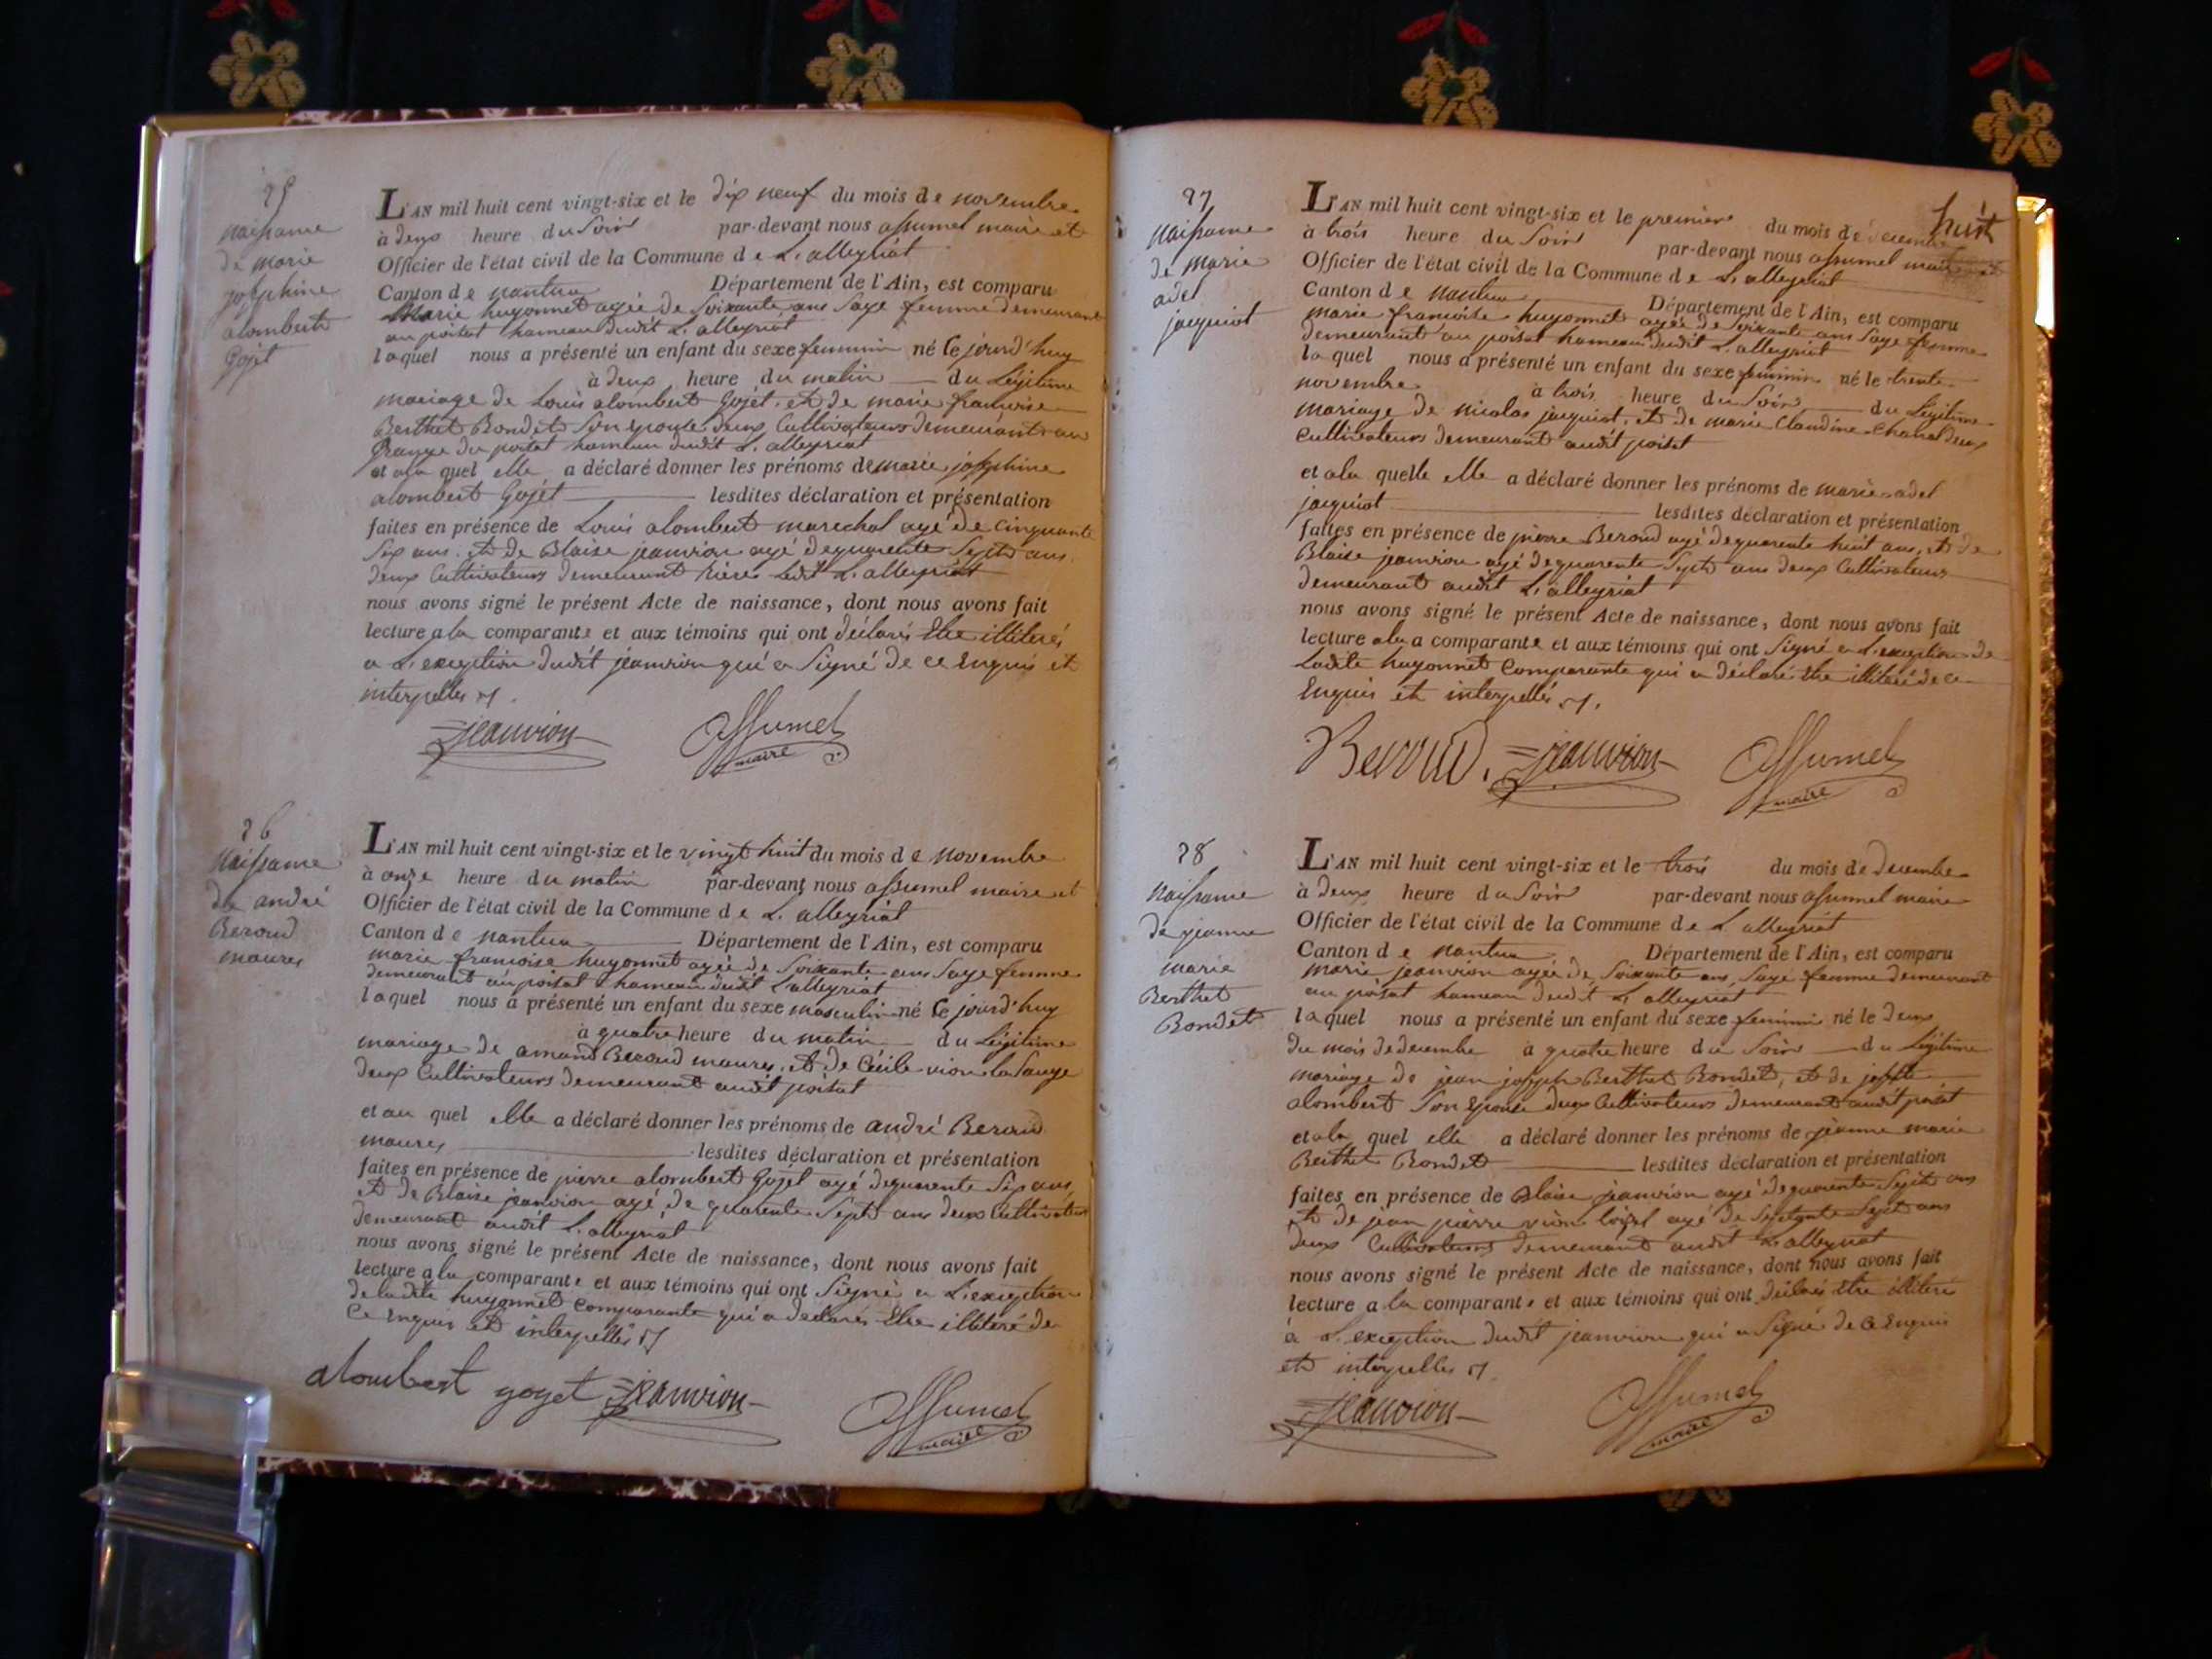 25
naissance
de marie
josephine
alombert
Gojet
L'AN mil huit cent vingt-six et le dix neuf du mois de novembre
à deux heure du Soir par-devant nous assumel maire et
Officier de l'état civil de la Commune de L'alleyriat
Canton de nantua Département de l'Ain, est comparu
Marie huyonnet agée de Soixante ans Sage femme demeurant
au poisat hameau dudit L'alleyriat
laquel nous a présenté un enfant du sexe feminin né Ce jourd'huy
à deux heure du matin du Légitime
mariage de Louis alombert Gojet, et de marie francoise
Berthet Bondet Son epouse deux Cultivateurs demeurant au
Grange du poisat hameau dudit L'alleyriat
et ala quel elle a déclaré donner les prénoms de marie josephine
alombert Gojet lesdites déclaration et présentation
faites en présence de Louis alombert marechal agé de cinquante
Six ans, et de Blaise jeanvion agé de quarente Sept ans
deux Cultivateurs demeurant rière Ledit L'alleyriat
nous avons signé le présent Acte de naissance, dont nous avons fait
lecture a la comparante et aux témoins qui ont déclarés Etre illiterés
a L'exception dudit jeanvion qui a Signé de ce Enquis et
interpellés
jeanvion Assumel
maire
26
naissance
de andré
Beroud
maurex
L'AN mil huit cent vingt-six et le vingt huit du mois de novembre
à onze heure du matin par-devant nous assumel maire et
Officier de l'état civil de la Commune de L'alleyriat
Canton de nantua Département de l'Ain, est comparu
marie francoise huyonnet agée de Soixante ans Sage femme
demeurant au poisat hameau dudit L'alleyriat
laquel nous a présenté un enfant du sexe masculin né Ce jourd'huy
à quatre heure du matin du Légitime
mariage de amand Beroud maurex, et de Cécile vion la Sauge
deux Cultivateurs demeurant audit poisat
et au quel elle a déclaré donner les prénoms de andré Beroud
maurex lesdites déclaration et présentation
faites en présence de pierre alombert Gojet agé de quarente Six ans
et de Blaise jeanvion agé de quarente Sept ans deux Cultivateurs
demeurant audit L'alleyriat
nous avons signé le présent Acte de naissance, dont nous avons fait
lecture a la comparante et aux témoins qui ont Signé a L'exception
de ladite huyonnet Comparante qui a declarés Etre illiteré de
Ce Enquis et interpellés
alombert goyet jeanvion Assumel
maire
huit
27
naissance
de marie
adel
jacquiot
L'AN mil huit cent vingt-six et le premiere du mois de decembre
à trois heure du Soir par-devant nous assumel maire et
Officier de l'état civil de la Commune de L'alleyriat
Canton de nantua Département de l'Ain, est comparu
marie francoise huyonnet agée de Soixante ans Sage femme
demeurant au poisat hameau dudit L'alleyriat
laquel nous a présenté un enfant du sexe feminin né le trente
novembre à trois heure du Soir du Légitime
mariage de nicolas jacquiot, et de marie Claudine Chanal deux
Cultivateurs demeurant audit poisat
et ala quelle elle a déclaré donner les prénoms de marie adel
jacquiot lesdites déclaration et présentation
faites en présence de pierre Beroud agé de quarente huit ans, et de
Blaise jeanvion agé de quarente Sept ans deux Cultivateurs
demeurant audit L'alleyriat
nous avons signé le présent Acte de naissance, dont nous avons fait
lecture ala comparante et aux témoins qui ont Signé a L'exception de
Ladite huyonnet Comparante qui a déclaré Etre illiteré de ce
Enquis et interpellés
Beroud. jeanvion Assumel
maire
28
naissance
de jeanne
marie
Berthet
Bondet
L'AN mil huit cent vingt-six et le trois du mois de decembre
à deux heure du Soir par-devant nous assumel maire
Officier de l'état civil de la Commune de L'alleyriat
Canton de nantua Département de l'Ain, est comparu
marie jeanvion agée de Soixante ans, Sage femme demeurant
au poisat hameau dudit L'alleyriat
laquel nous a présenté un enfant du sexe feminin né le deux
du mois de decembre à quatre heure du Soir du Légitime
mariage de jean joseph Berthet Bondet, et de josephte
alombert Son Epouse deux Cultivateurs demeurant audit poisat
et ala quel elle a déclaré donner les prénoms de jeanne marie
Berthet Bondet lesdites déclaration et présentation
faites en présence de Blaise jeanvion agé de quarente Sept ans
et de jean pierre vion loisel agé de Septante Sept ans
deux Cultivateurs demeurant audit L'alleyriat
nous avons signé le présent Acte de naissance, dont nous avons fait
lecture a la comparante et aux témoins qui ont déclarés Etre illiteré
à L'exception dudit jeanvion qui a Signé de Ce Enquis
et interpellés
jeanvion Assumel
maire